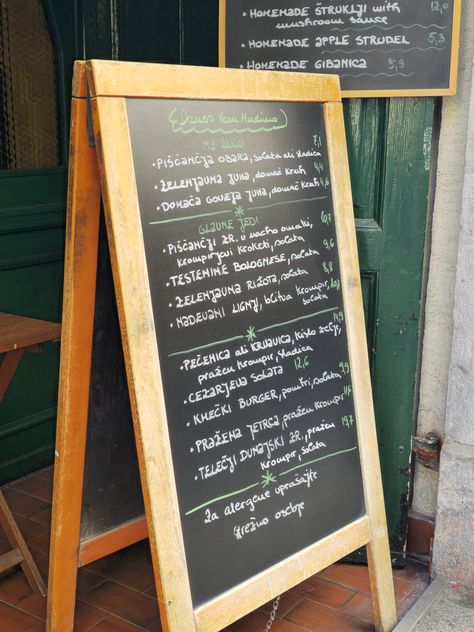 HOMEMADE ŠTRUKLJI with 12,0
mushroom sauce
• HOMEMADE APPLE STRUDEL 5,3
• HOMEMADE GIBANICA 5,9
Danes Vam Nudimo
NA ŽLICO
• PIŠČANČJA OBARA, solata ali sladica 7,1
• ZELENJAVNA JUHA, domač kruh 4,4
• DOMAČA GOVEJA JUHA, domač kruh 4,6
GLAVNE JEDI
• PIŠČANČJI ZR. v omaki, 6,7
krompirjevi kroketi, solata
• TESTENINE BOLOGNESE, solata 9,6
• ZELENJAVNA RIŽOTA, solata 8,8
• NADEVANI LIGNJI, blitva krompir,
solata
• PEČENICA ali KRVAVICA, kislo zelje,
pražen krompir, sladica
• CEZARJEVA SOLATA 12,6
• KMEČKI BURGER, pomfri, solata 9,9
• PRAŽENA JETRCA, pražen krompir 11,6
• TELEČJI DUNAJSKI ZR. pražen 19,7
krompir, solata
Za alergene vprašajte
strežno osebje